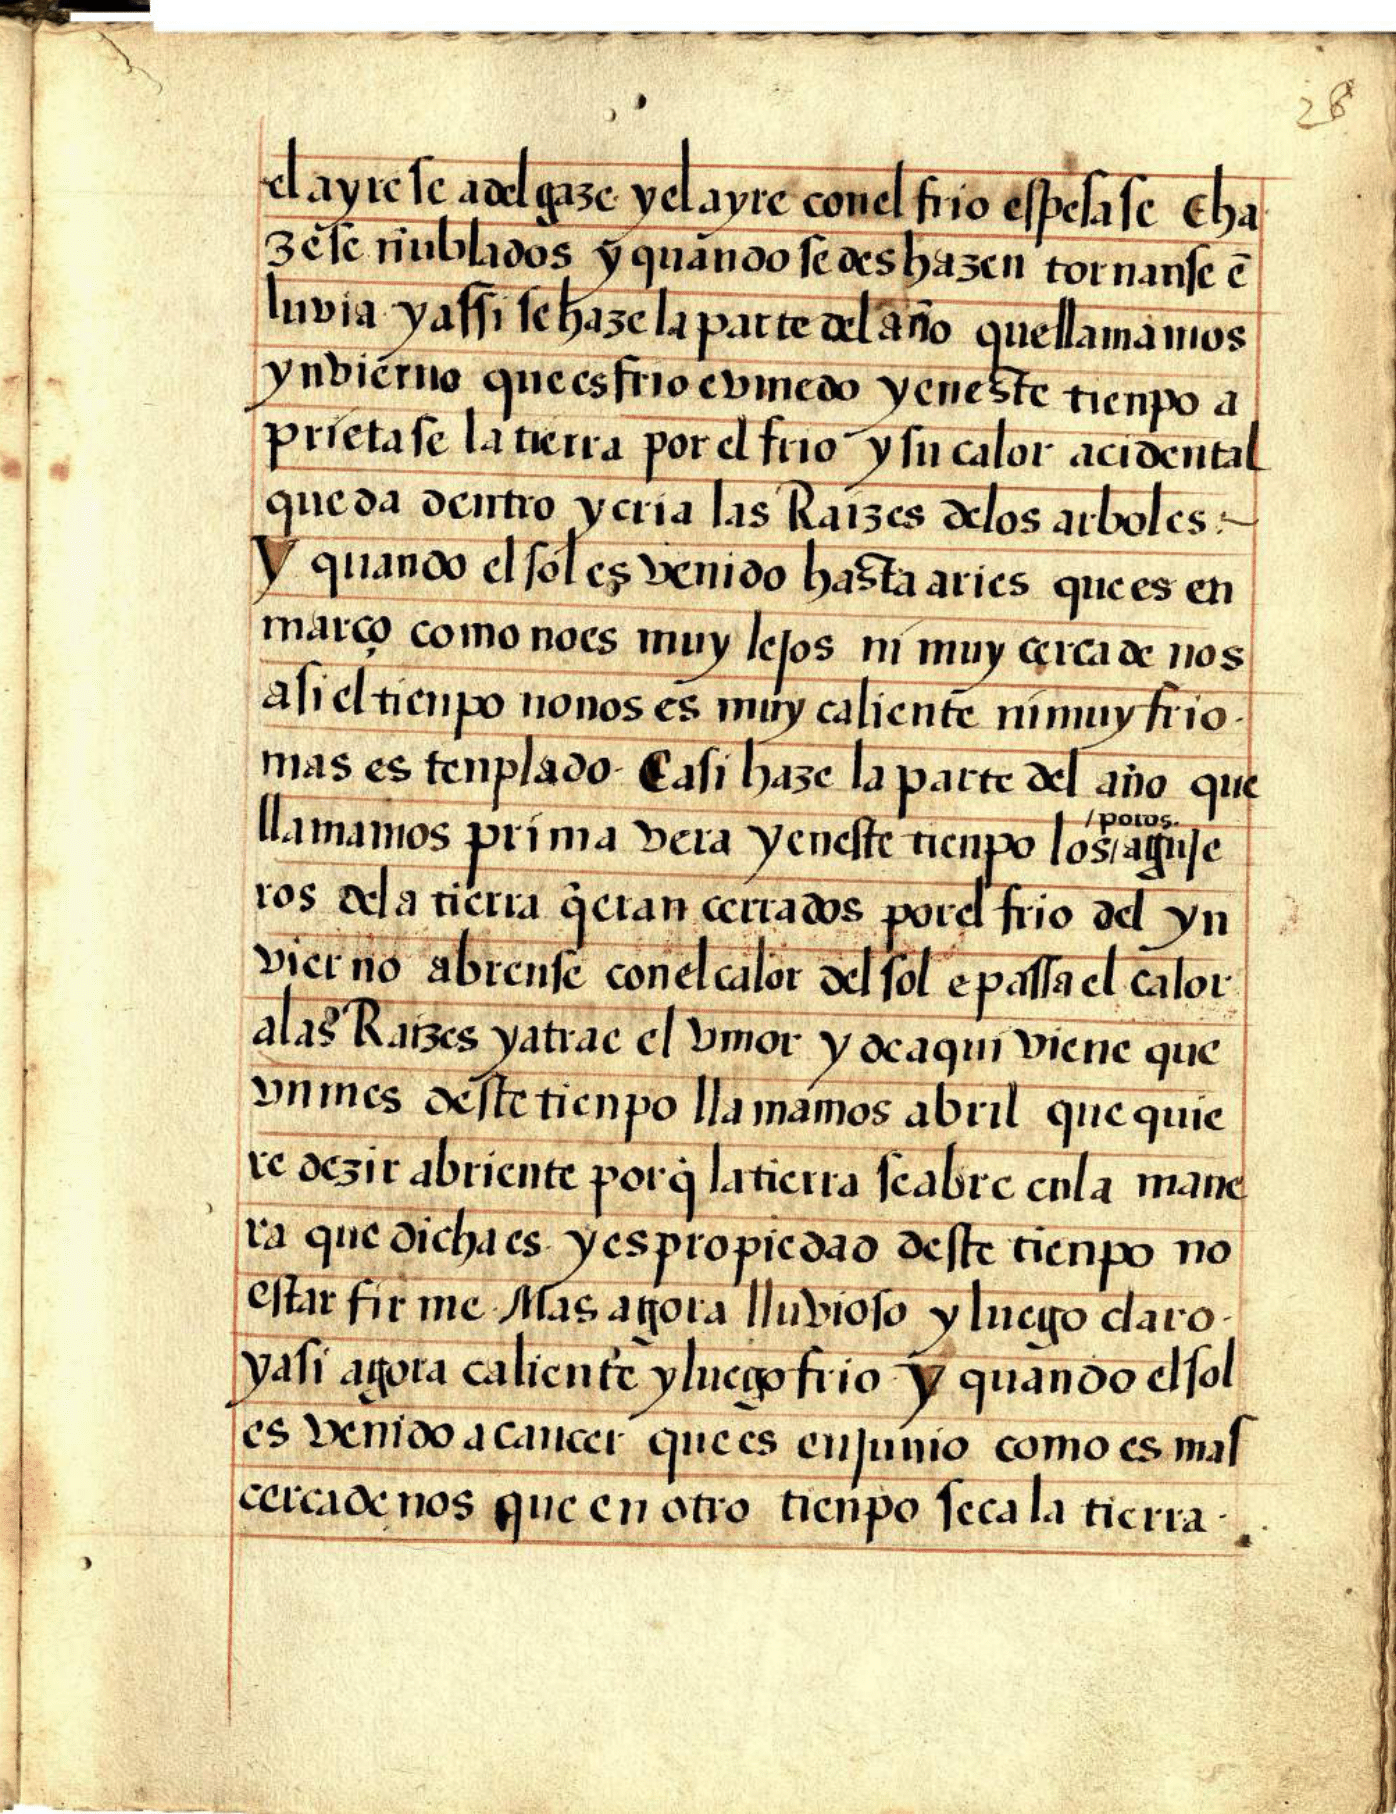 28
el ayre se adelgaze y el ayre con el frio espesase E ha
zẽse nublados y quando se deshazen tornanse ẽ
luvia y assi se haze la parte del año que llamamos
ynvierno que es frio e vmedo y en este tienpo a
prietase la tierra por el frio y su calor acidental
queda dentro y cria las Raizes delos arboles :~
Y quando el sol es venido hasta aries que es en
março como no es muy lejos ni muy çerca de nos
asi el tienpo no nos es muy caliente ni muy frio.
mas es tenplado. E asi haze la parte del año que
/poros.
llamamos prima vera y en este tienpo los/aguje
ros dela tierra q̃ eran cerrados por el frio del yn
vierno abrense con el calor del sol e passa el calor
alas Raizes y atrae el vmor y de aqui viene que
vn mes deste tienpo llamamos abril que quie
re dezir abriente porq̃ la tierra se abre enla mane
ra que dicha es. y es propiedad deste tienpo no
estar firme. Mas agora lluvioso y luego claro.
y asi agora caliente y luego frio. Y quando el sol
es venido a cancer que es en junio como es mas
cerca de nos que en otro tienpo seca la tierra.